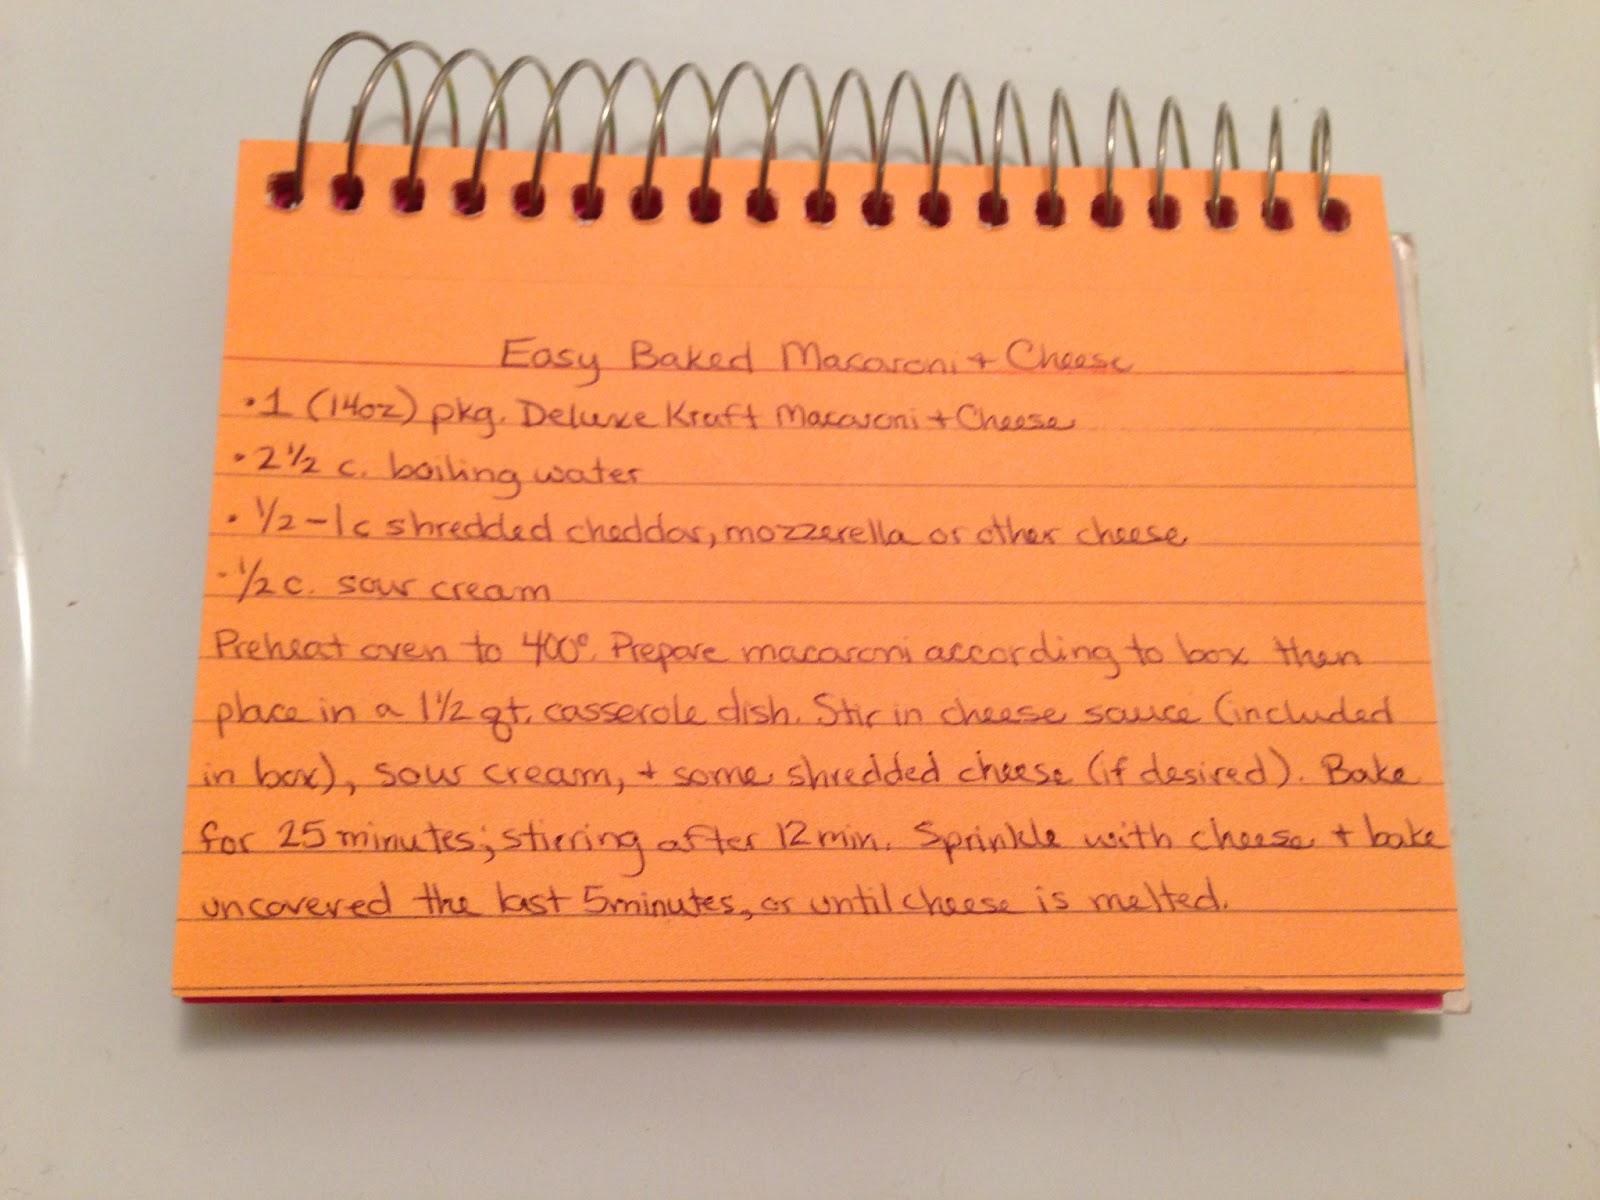 Easy Baked Macaroni + Cheese
• 1 (14oz) pkg. Deluxe Kraft Macaroni + Cheese
• 2 1/2 c. boiling water
• 1/2 - 1 c shredded cheddar, mozzerella or other cheese
• 1/2 c. sour cream
Preheat oven to 400°. Prepare macaroni according to box then
place in a 1 1/2 qt. casserole dish. Stir in cheese sauce (included
in box), sour cream, + some shredded cheese (if desired). Bake
for 25 minutes; stirring after 12 min. Sprinkle with cheese + bake
uncovered the last 5 minutes, or until cheese is melted.